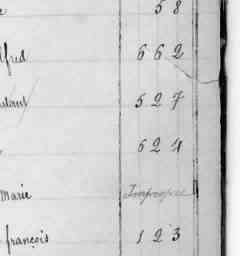 5 8
lfred 6 6 2
5 2 7
6 2 4
Marie Impropre
françois 1 2 3